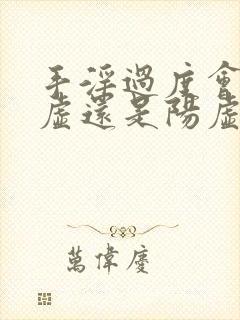 手淫過度會
虛還是陽虛
萬偉慶